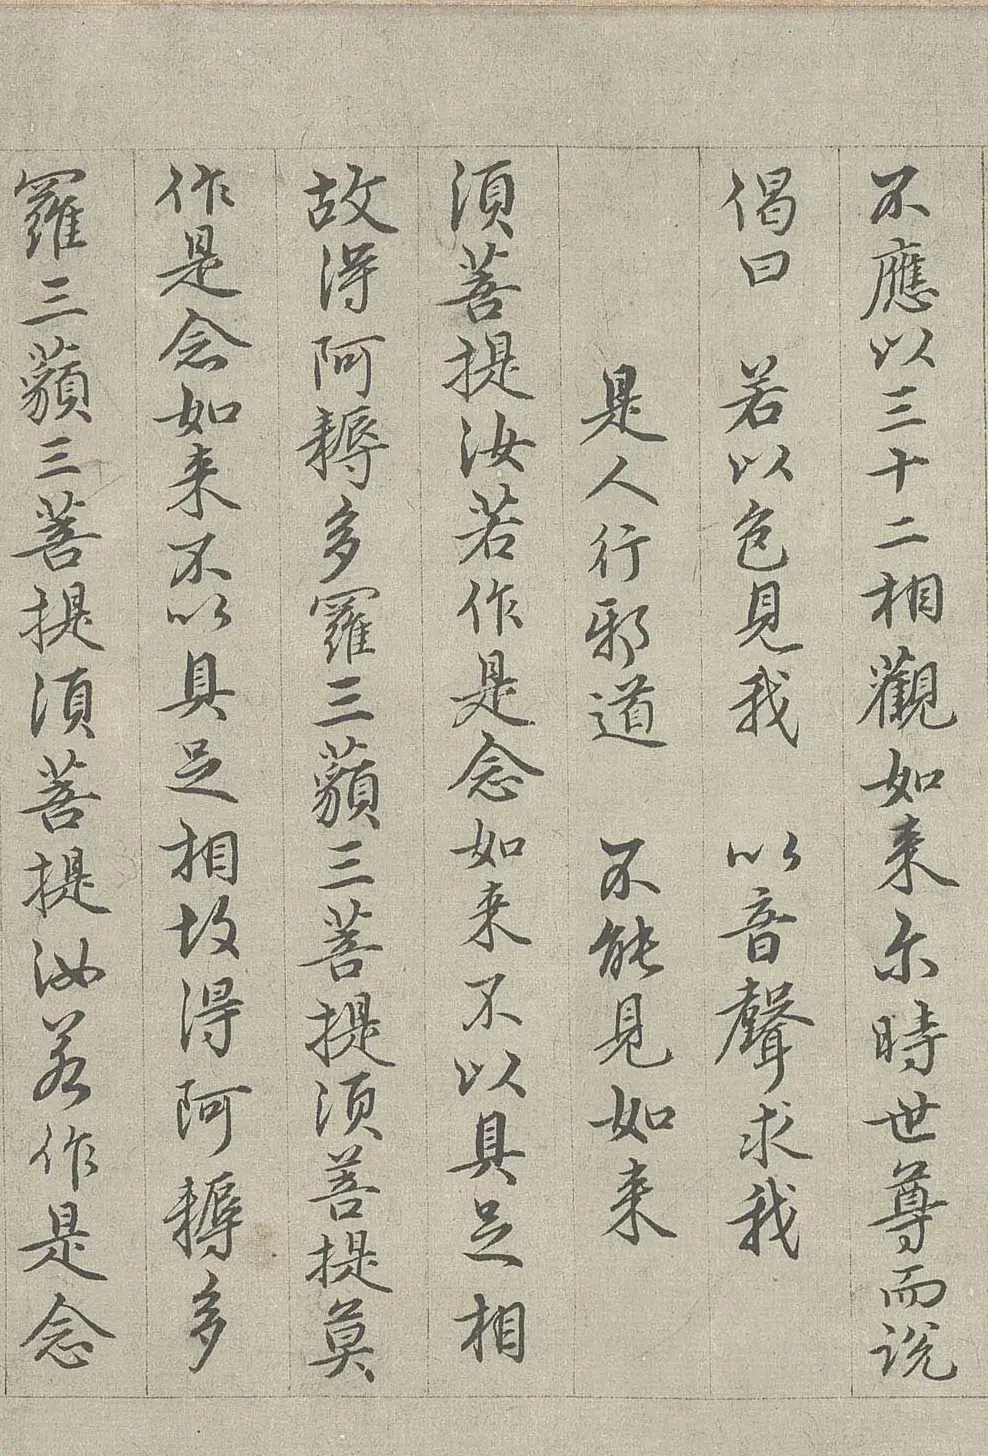 不應以三十二相觀如来尔時世尊而説
偈曰　若以色見我　以音聲求我
是人行邪道　不能見如来
湏菩提汝若作是念如来不以具足相
故得阿耨多羅三藐三菩提湏菩提莫
作是念如来不以具足相故得阿耨多
羅三藐三菩提湏菩提汝若作是念